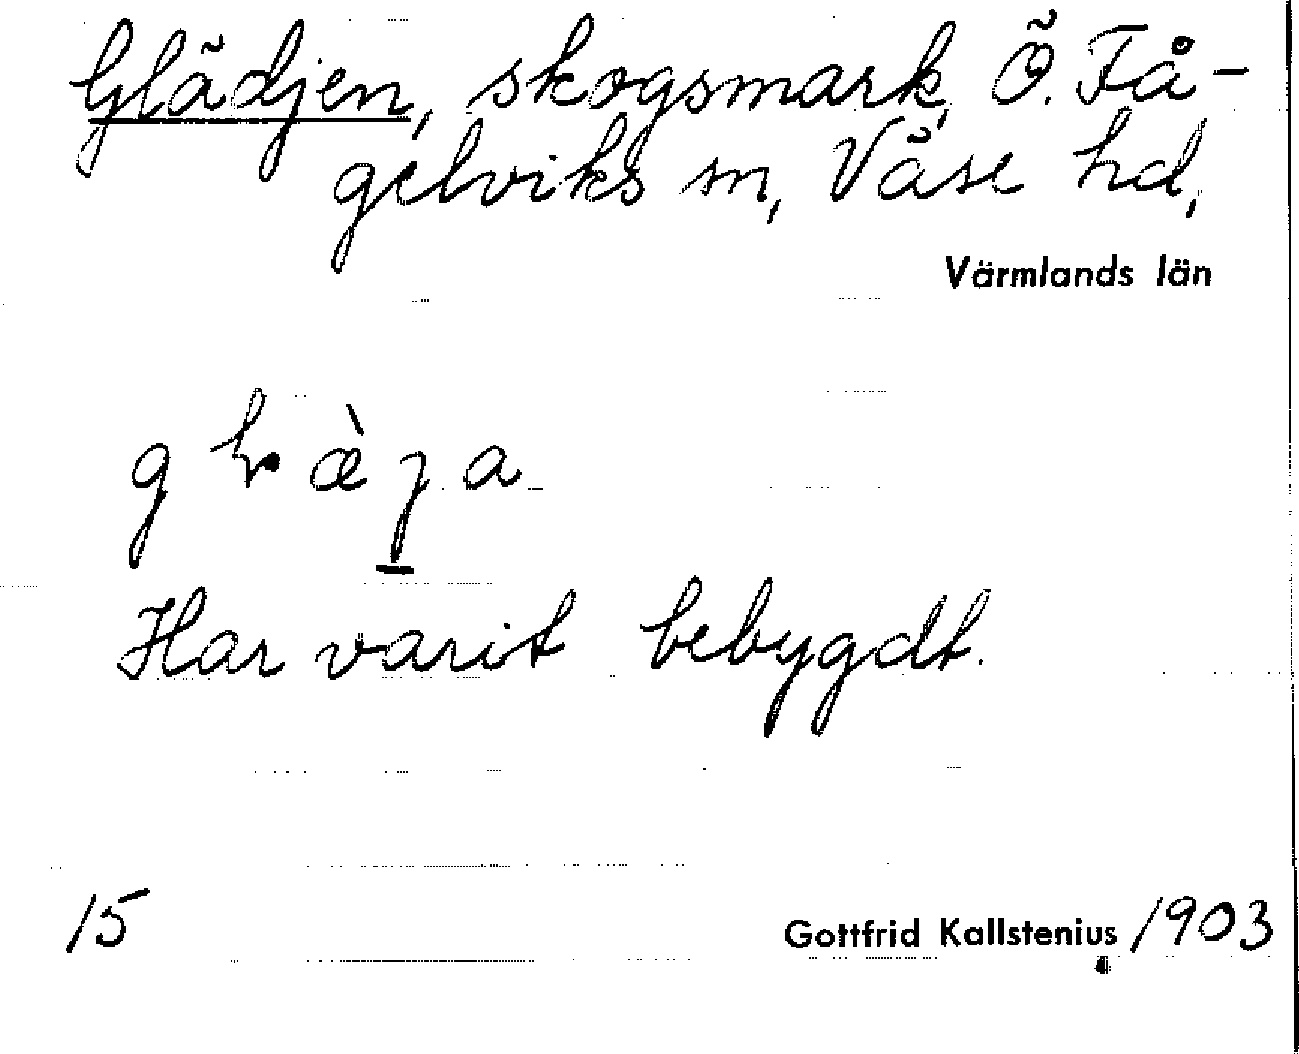 Glädjen, skogsmark, Ö. Få-
gelviks sn, Väse hd,
Värmlands län
Har varit bebygdt.
15
Gottfrid Kallstenius 1903